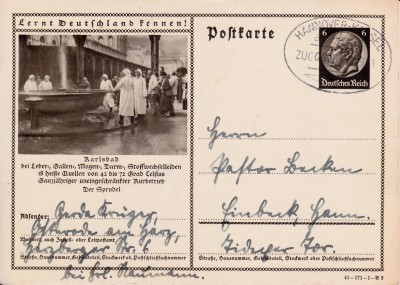 Lernt Deutschland kennen!
Karlsbad
bei Leber-, Gallen-, Magen-, Darm-, Stoffwechselleiden
ist heiße Quellen von 42 bis 72 Grad Celsius
Ganzjähriger uneingeschränkter Kurbetrieb
Der Sprudel
Absender: Gerda Krüger,
Osterode am Harz,
Wohnort, auch Zustell- oder Leitpostamt
Herzberger Str. 6
Straße, Hausnummer, Gebäudeteil, Stockwerk od. Postschließfachnummer
bei Frl. Naumann.
Postkarte
HANNOVER-KASSEL
ZUG
6 6
Deutsches Reich
Herrn
Pastor Becken
Einbeck, Hann.
Tidexer Tor.
Straße, Hausnummer, Gebäudeteil, Stockwerk od. Postschließfachnummer
41-171-1-B 9